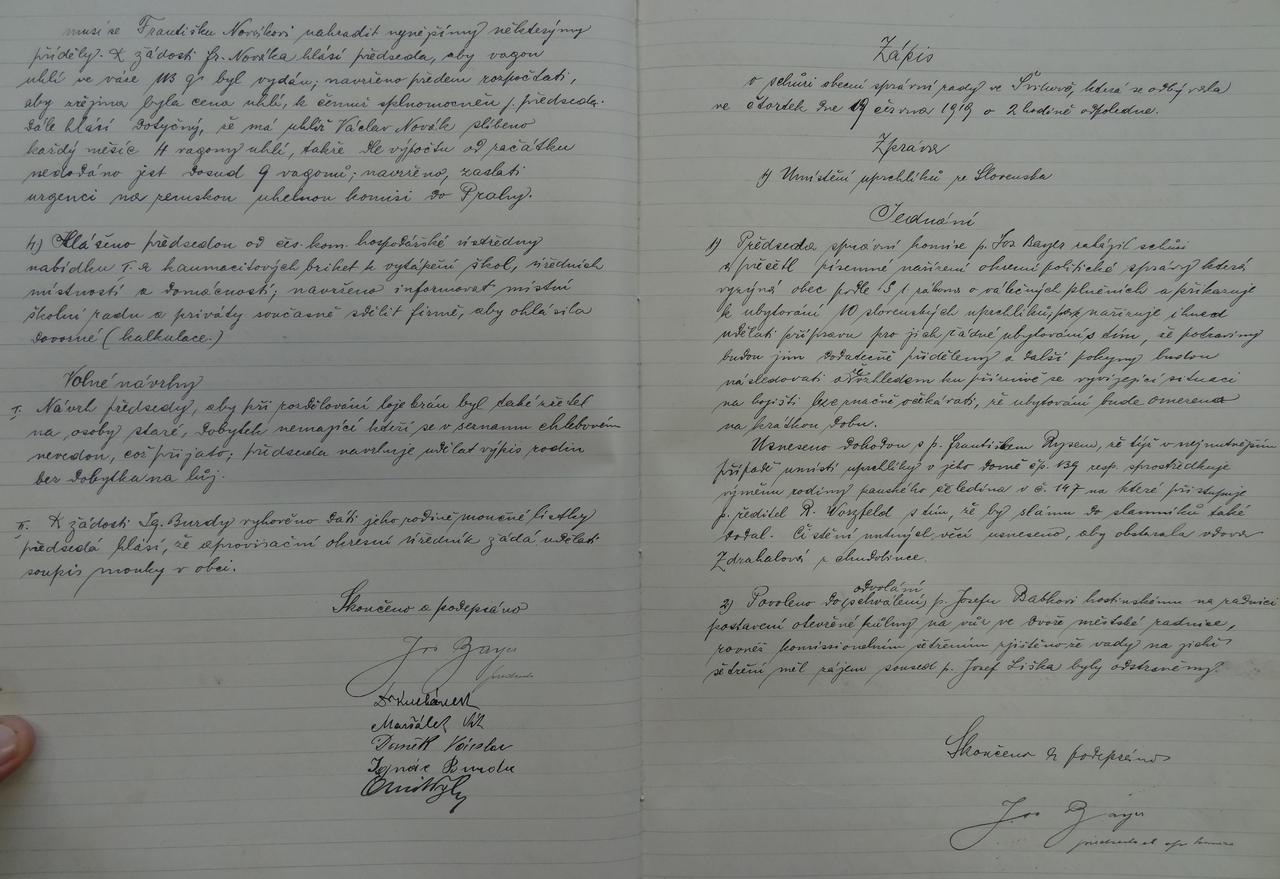 musí se Františku Novákovi nahradit nynějšímy některýmy
příděly. K žádosti Fr. Nováka hlásí předseda, aby vagon
uhlí ve váze 113 q byl vydán; navrženo předem rozpočítati,
aby zřejma byla cena uhlí, k čemuž splnomocněn p. předseda.
Dále hlásí dotyčný, že má uhlíř Václav Novák slíbeno
každý měsíc 4 vagony uhlí, takže dle výpočtu od začátku
nedodáno jest dosud 9 vagonů; navrženo, zaslati
urgenci na zemskou uhelnou komisi do Prahy.
h) Hlášeno předsedou od čes. kom. hospodářské ústředny
nabídku kaumacitových briket k vytápění škol, úředních
místností a domácností; navrženo informovat místní
školní radu a priváty současně sdělit firmě, aby ohlásila
dovozné (kalkulace.)
Volné návrhy
I. Návrh předsedy, aby při rozdělování loje brán byl také zřetel
na osoby staré, dobytek nemající kteří se v seznamu chlebovém
nevedou, což přijato; předseda navrhuje udělat výpis rodin
bez dobytka na lůj.
II. K žádosti Ig. Burdy vyhověno dáti jeho rodině moučné lístky
předsedá hlásí, že aprovisační okresní úředník žádá udělati
soupis mouky v obci.
Skončeno a podepsáno
Jos Bayer
předseda
Maršálek Vít
Daněk Václav
Ignác Burda
Zápis
o schůzi obecní správní rady ve Šti­tkově, která se odbývala
ve čtvrtek dne 19 června 1919 o 2 hodině odpoledne.
Zpráva
1) Umístění uprchlíků ze Slovenska
Jednání
1) Předseda správní komise p. Jos Bayer zahájil schůzi
a přečetl písemné nařízení okresní politické správy která
vyzývá obec podle § 1 zákona o válečných plněních a přikazuje
k ubytování 10 slovenských uprchlíků, nařizuje ihned
udělati přípravu pro jich řádné ubytování s tím, že potraviny
budou jim dodatečně přiděleny a další pokyny budou
následovati a vzhledem ku příznivě se vyvíjející situaci
na bojišti lze značně očekávati, že ubytování bude omezeno
na krátkou dobu.
Usneseno dohodou s p. Františkem Rysem, že týž v nejnutnějším
případě umístí uprchlíky v jeho domě čp. 139 resp. sprostředkuje
výměnu rodiny panského čeledína v č. 147 na které přistupuje
p. ředitel R. Worzfeld s tím, že by slámu do slamníků také
dodal. Čistění nutných věcí usneseno, aby obstarala vdova
Zdrahalová z chudobince.
2) Povoleno do odvolání p. Josefu Babkovi hostinskému na radnici
postavení otevřené kůlny na vůz ve dvoře městské radnice,
rovněž komissionelním šetřením zjištěno že vady na jichž
šetření měl zájem soused p. Josef Liška byly odstraněny.
Skončeno a podepsáno
Jos Bayer
předseda ob. spr. komise